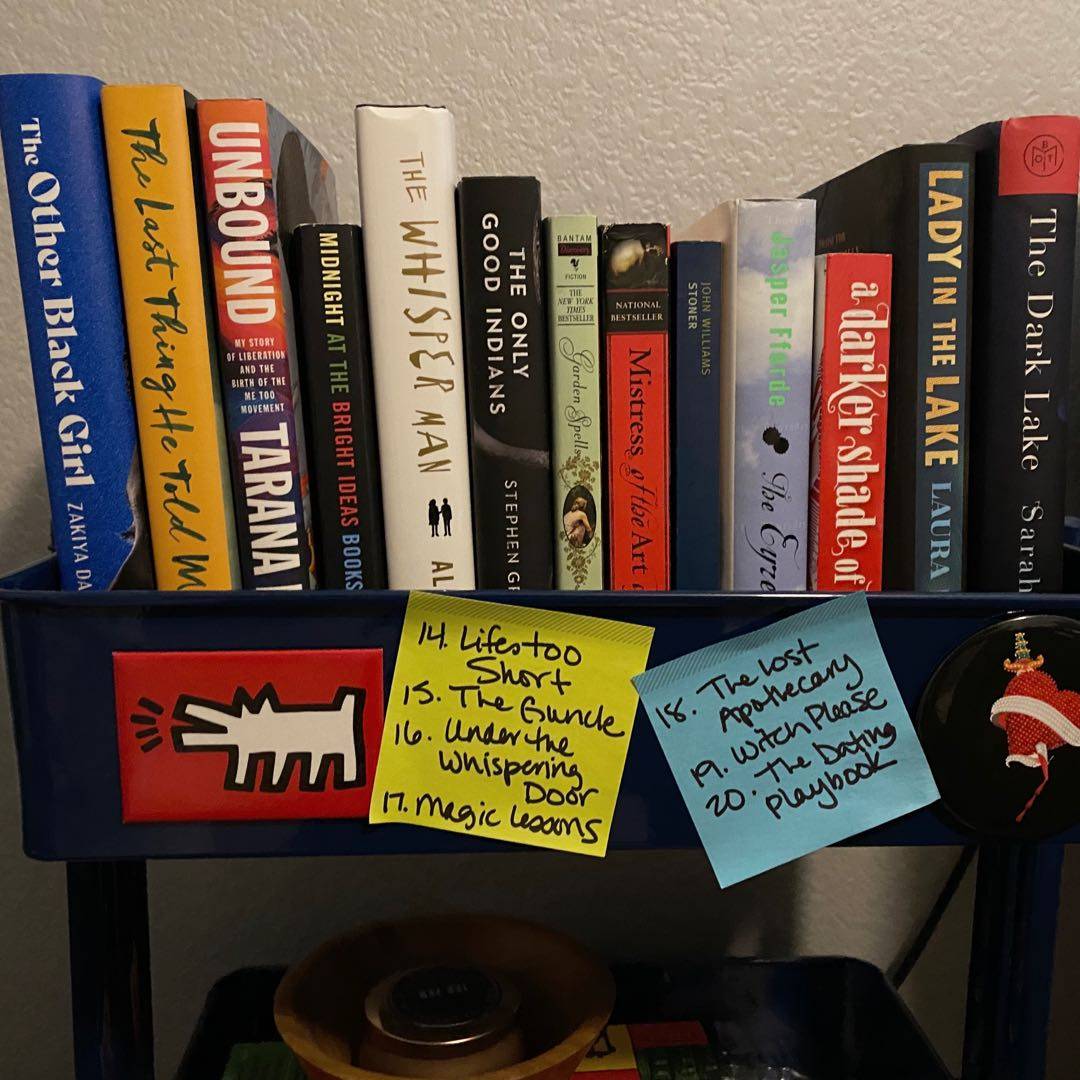 The Other Black Girl ZAKIYA DA
The Last Thing He Told M
UNBOUND
MY STORY
OF LIBERATION
AND THE
BIRTH OF THE
ME TOO
MOVEMENT
TARANA
MIDNIGHT AT THE BRIGHT IDEAS BOOKS
THE WHISPER MAN AL
THE ONLY
GOOD INDIANS
STEPHEN G
BANTAM
Discovery
FICTION
THE
NEW YORK
TIMES
BESTSELLER
Garden Spells
NATIONAL
BESTSELLER
Mistress of the Art
JOHN WILLIAMS
STONER
Jasper Fforde
The Eyre
a darker shade of
LADY IN THE LAKE LAURA
BOT
The Dark Lake Sarah
14. Lifes too
Short
15. The Guncle
16. Under the
Whispering
Door
17. Magic Lessons
18. The Lost
Apothecary
19. Witch Please
20. The Dating
playbook